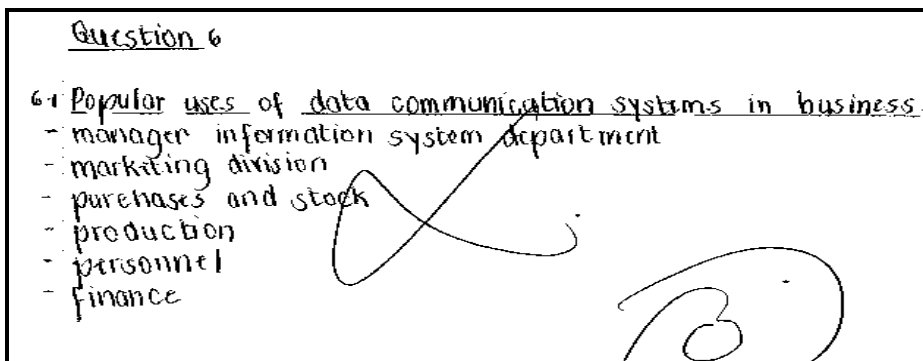 Question 6
6.1 Popular uses of data communication systems in business
- manager information system department
- marketing division
- purchases and stock
- production
- personnel
- finance